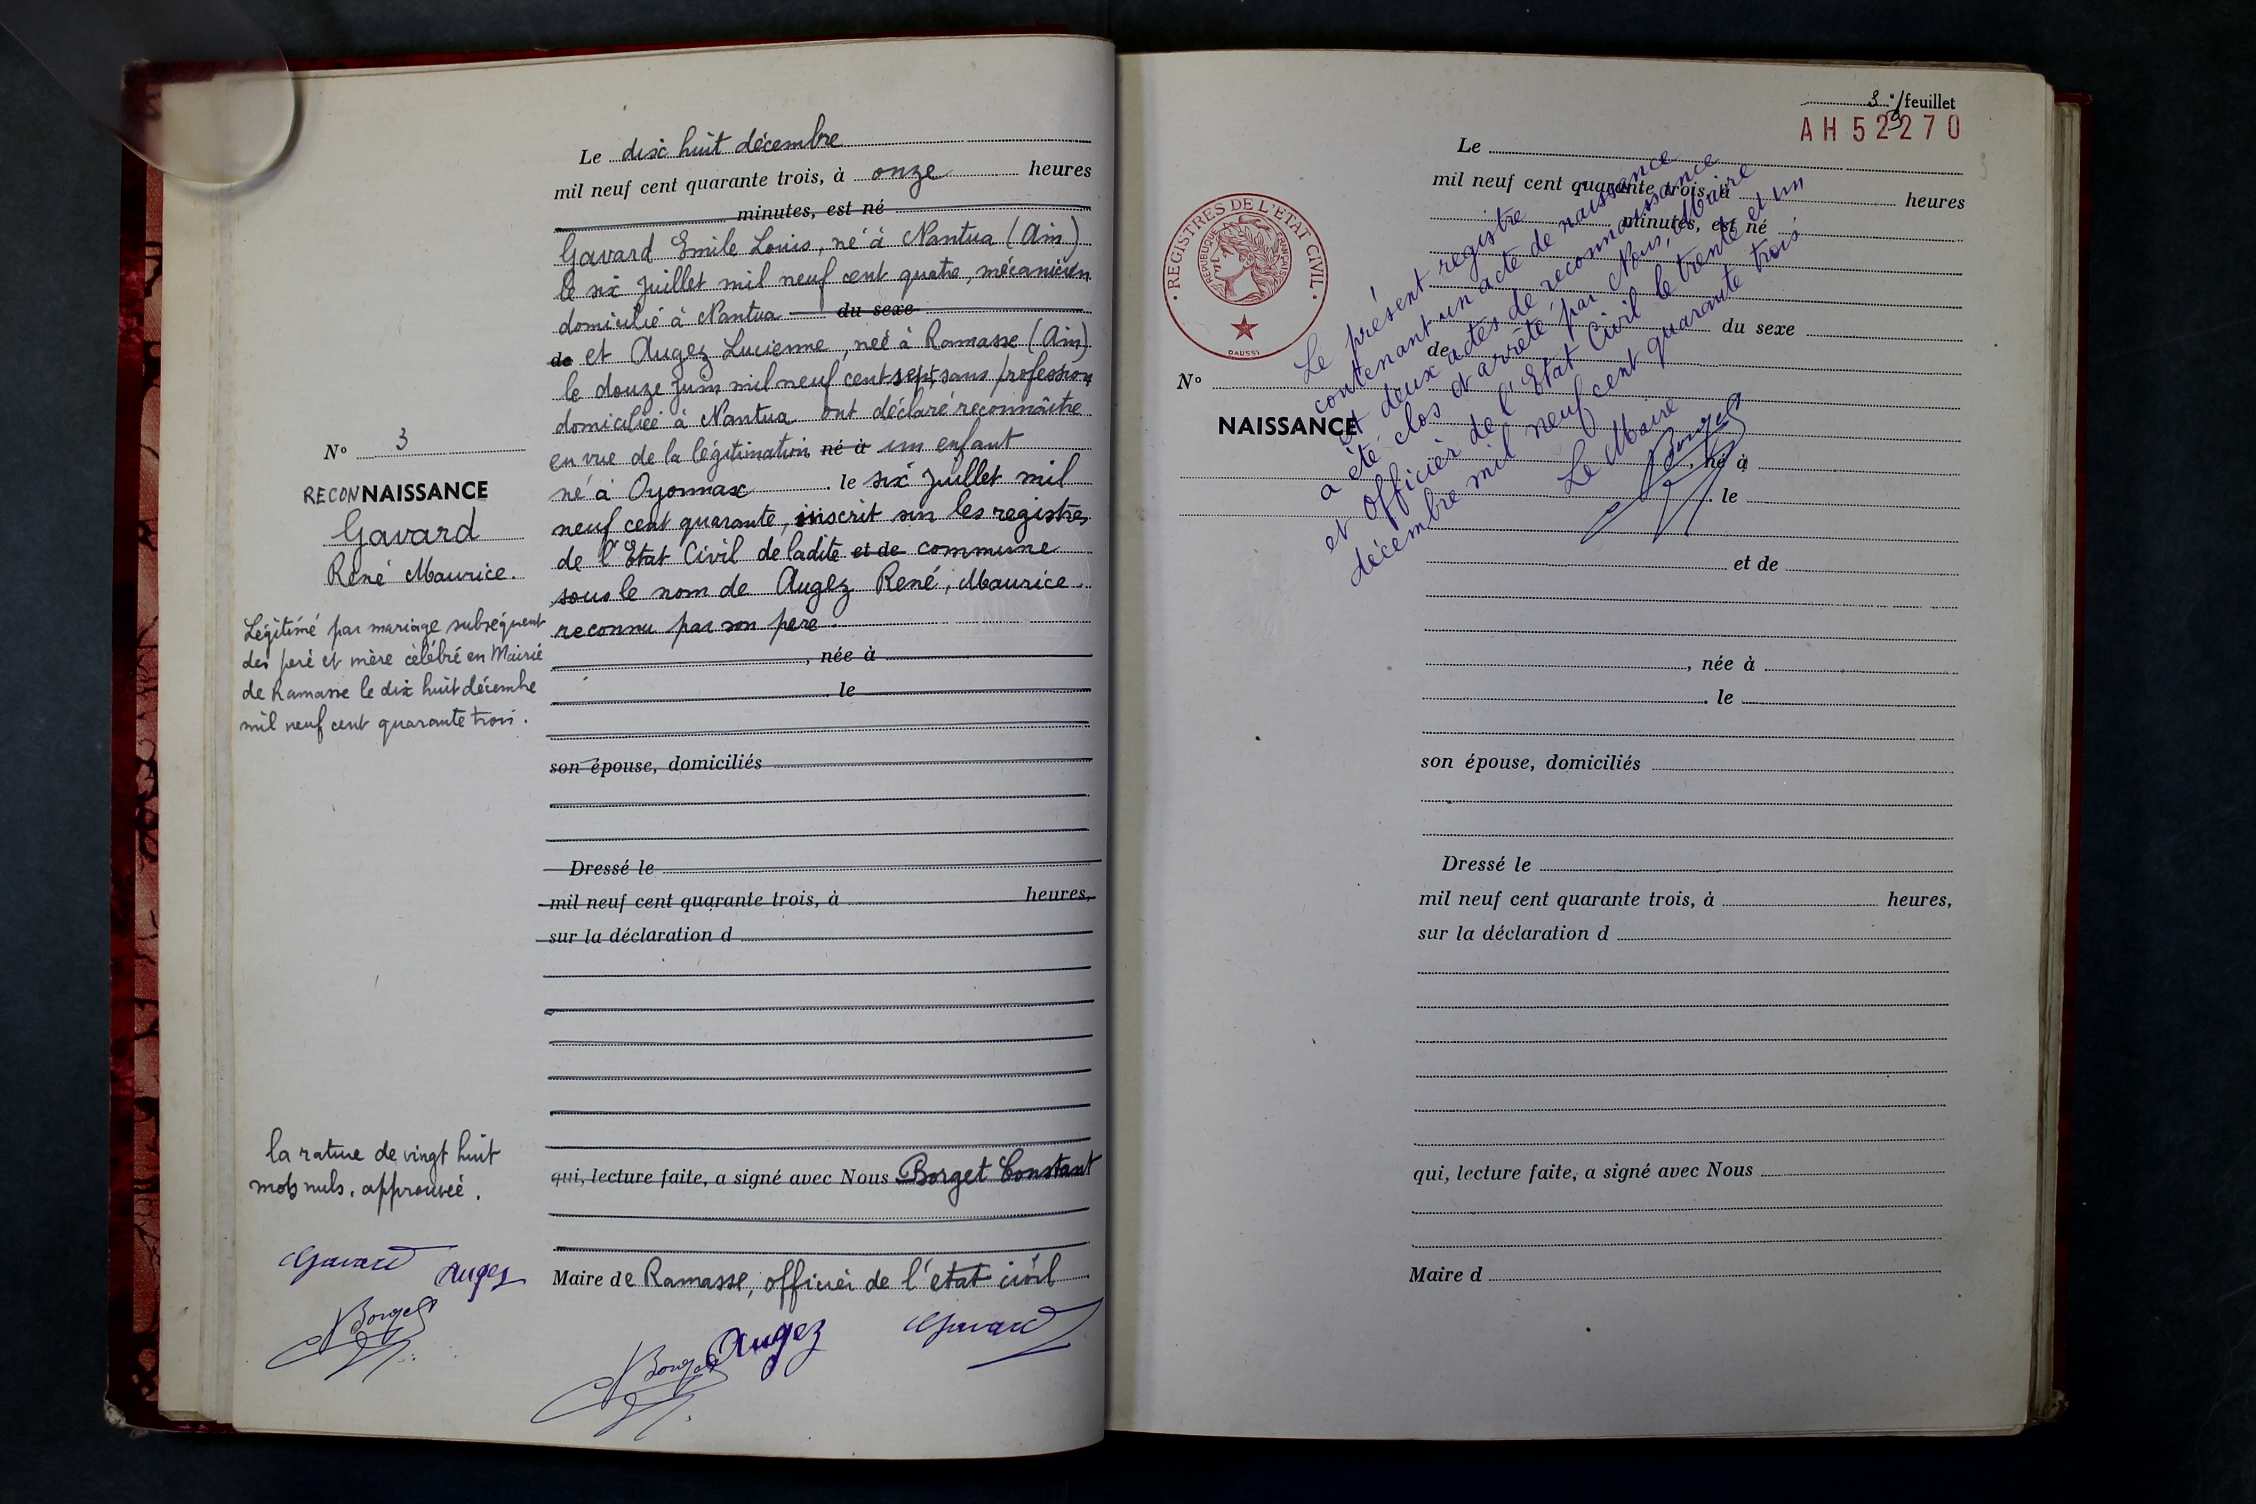 Le dix huit décembre
mil neuf cent quarante trois, à onze heures
minutes, est né
Gavard Emile Louis, né à Nantua (Ain)
le six Juillet mil neuf cent quatre, mécanicien
domicilié à Nantua du sexe
de et Augez Lucienne, née à Ramasse (Ain)
le douze Juin mil neuf cent sept, sans profession
domiciliée à Nantua ont déclaré reconnaître
en vue de la légitimation né à un enfant
né à Oyonnax le six Juillet mil
neuf cent quarante, inscrit sur les registres
de l'Etat Civil de ladite et de commune
sous le nom de Augez René, Maurice
reconnu par son père.
, née à
le
son épouse, domiciliés
Dressé le
mil neuf cent quarante trois, à heures,
sur la déclaration d
qui, lecture faite, a signé avec Nous Borget Constant
Maire de Ramasse, officier de l'etat civil
Borget Augez Gavard
N° 3
RECONNAISSANCE
Gavard
René Maurice.
Légitimé par mariage subséquent
des père et mère célébré en Mairie
de Ramasse le dix huit décembre
mil neuf cent quarante trois.
la rature de vingt huit
mots nuls. approuvée.
Gavard Augez
Borget
3e feuillet
AH 52270
REGISTRES DE L'ETAT CIVIL
REPUBLIQUE FRANÇAISE
DAUSSY
N°
NAISSANCE
Le
mil neuf cent quarante trois, à heures
minutes, est né
du sexe
de
, né à
le
et de
, née à
le
son épouse, domiciliés
Dressé le
mil neuf cent quarante trois, à heures,
sur la déclaration d
qui, lecture faite, a signé avec Nous
Maire d
Le présent registre
contenant un acte de naissance
et deux actes de reconnaissance
a été clos et arrêté par Nous, Maire
et Officier de l'Etat Civil le trente et un
décembre mil neuf cent quarante trois
Le Maire
Borget